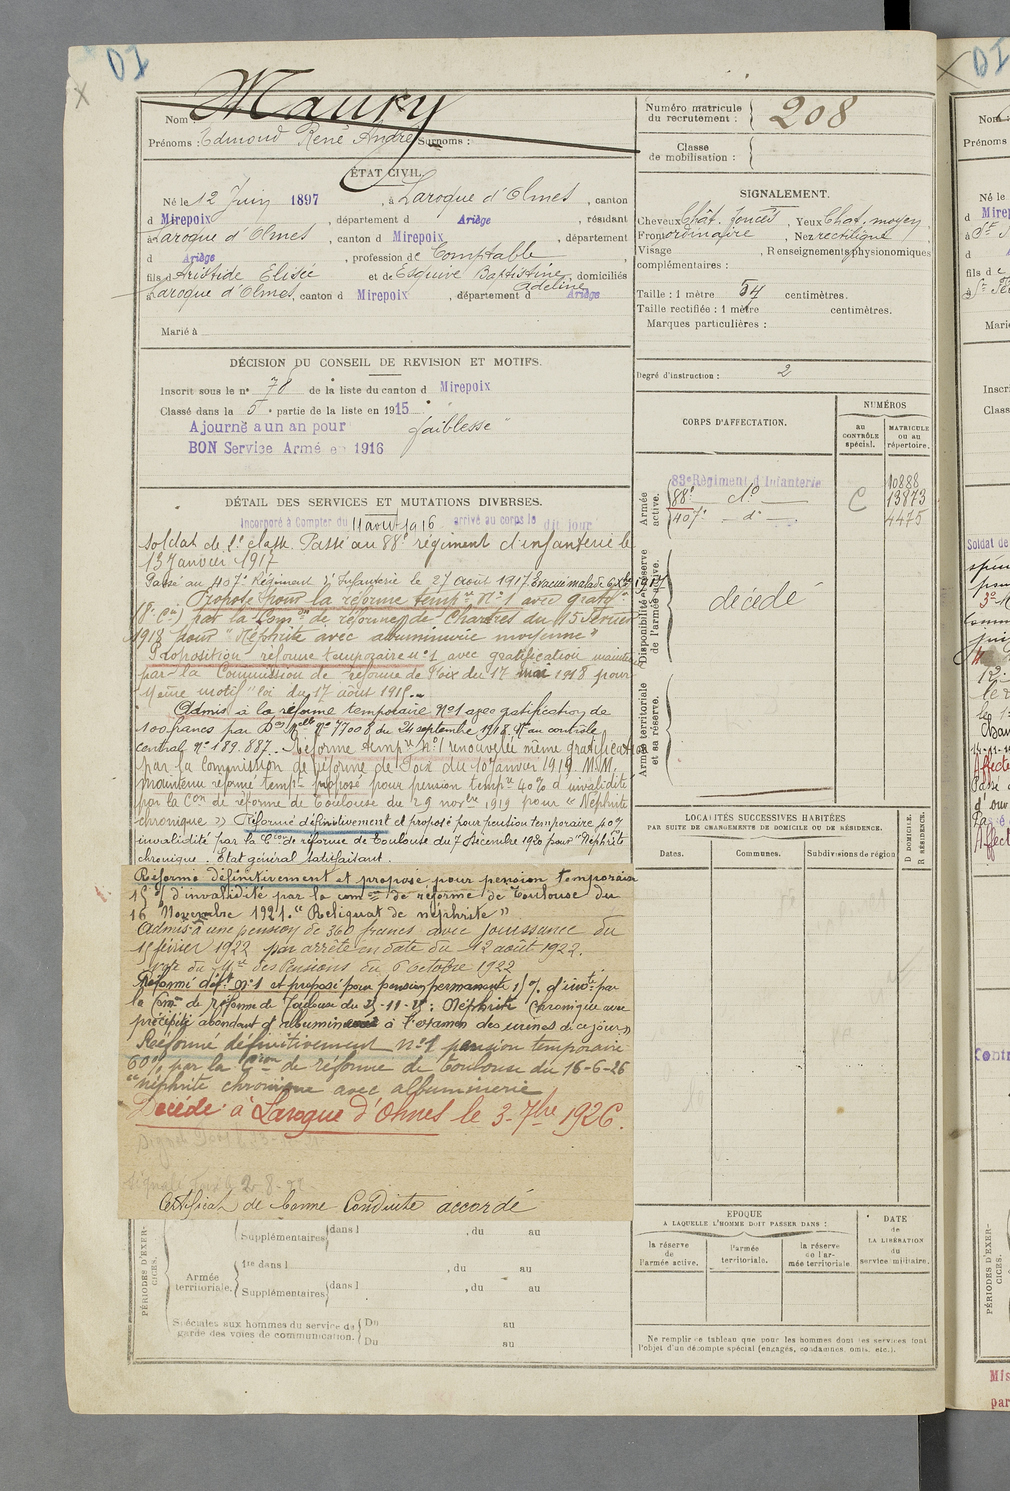 DI
Nom : Maury
Prénoms : Edmond René André Surnoms :
Numéro matricule du recrutement : 208
Classe de mobilisation :
ÉTAT CIVIL.
Né le 12 Juin 1897, à Laroque d'Olmes, canton
d Mirepoix, département d Ariège, résidant
à Laroque d'Olmes, canton d Mirepoix, département
d Ariège, profession de Comptable,
fils d'Aristide Elisée et de Esquive Baptistine Adeline, domiciliés
à Laroque d'Olmes, canton d Mirepoix, département d Ariège
Marié à
SIGNALEMENT.
Cheveux Chât. foncés, Yeux Chat. moyen,
Front ordinaire, Nez rectiligne,
Visage , Renseignements physionomiques
complémentaires :
Taille : 1 mètre 54 centimètres.
Taille rectifiée : 1 mètre centimètres.
Marques particulières :
Degré d'instruction : 2
DÉCISION DU CONSEIL DE REVISION ET MOTIFS.
Inscrit sous le n° 78 de la liste du canton d Mirepoix
Classé dans la 5e partie de la liste en 1915.
Ajourné a un an pour faiblesse
BON Service Armé en 1916
DÉTAIL DES SERVICES ET MUTATIONS DIVERSES.
Incorporé à Compter du 11 août 1916 arrivé au corps le dit jour
soldat de 2e classe. Passé au 88e régiment d'infanterie le
13 Janvier 1917
Passé au 407e Régiment d'Infanterie le 27 août 1917. Evacué malade 6 Xbre 1917
Proposé pour la réforme tempre N°1 avec gratif
par la Comon de réforme de Chartres du 15 Février
1918 pour "Néphrite avec albuminurie moyenne"
Proposition réforme temporaire n°1 avec gratification maintenue
par la Commission de réforme de Foix du 17 mai 1918 pour
même motif" loi du 17 août 1915.
Admis à la réforme temporaire N°1 avec gratification de
100 francs par Don Melle N° 77008 du 24 septembre 1918. N° au contrôle
central N° 189.887. Réforme tempre N°1 renouvelée même gratification
par la Commission de réforme de Foix du 10 Janvier 1919. M.M.
maintenu réformé tempre proposé pour pension tempre 40% d'invalidité
par la Con de réforme de Toulouse du 29 novbre 1919 pour "Néphrite
chronique" Réformé définitivement et proposé pour pension temporaire 40%
invalidité par la Con de réforme de Toulouse du 7 Décembre 1920 pour "Néphrite
chronique. Etat général satisfaisant.
Réformé définitivement et proposé pour pension temporaire
15% d'invalidité par la comon de réforme de Toulouse du
16 Novembre 1921. "Reliquat de néphrite"
Admis à une pension de 360 francs avec jouissance du
février 1922 par arrêté en date du 12 août 1922.
du Mre des Pensions du 6 octobre 1922
Réformé déft N°1 et proposé pour pension permanente d'invté par
la Comon de réforme de Toulouse du : Néphrite chronique avec
précipité abondant d'albumine à l'examen des urines de ce jour"
Réformé définitivement N°1 pension temporaire
60% par la Con de réforme de Toulouse du 16-6-26
"néphrite chronique avec albuminerie
Décédé à Laroque d'Olmes le 3-7bre 1926.
Certificat de bonne Conduite accordé
CORPS D'AFFECTATION.
NUMÉROS
au CONTRÔLE spécial.
MATRICULE ou au répertoire.
Armée active.
83e Régiment d'Infanterie 10888
88e do C 13873
407e do 4475
Disponibilité et réserve de l'armée active.
décédé
Armée territoriale et sa réserve.
LOCALITÉS SUCCESSIVES HABITÉES
PAR SUITE DE CHANGEMENTS DE DOMICILE OU DE RÉSIDENCE.
Dates.
Communes.
Subdivisions de région
D. DOMICILE.
R. RÉSIDENCE.
EPOQUE
A LAQUELLE L'HOMME DOIT PASSER DANS :
la réserve de l'armée active.
l'armée territoriale.
la réserve de l'armée territoriale
DATE de LA LIBÉRATION du service militaire.
Ne remplir ce tableau que pour les hommes dont les services font
l'objet d'un décompte spécial (engagés, condamnés, omis, etc.).
PÉRIODES D'EXERCICES.
Supplémentaires dans l , du au
Armée territoriale.
1re dans l , du au
Supplémentaires dans l , du au
Spéciales aux hommes du service de garde des voies de communication.
Du au
Du au